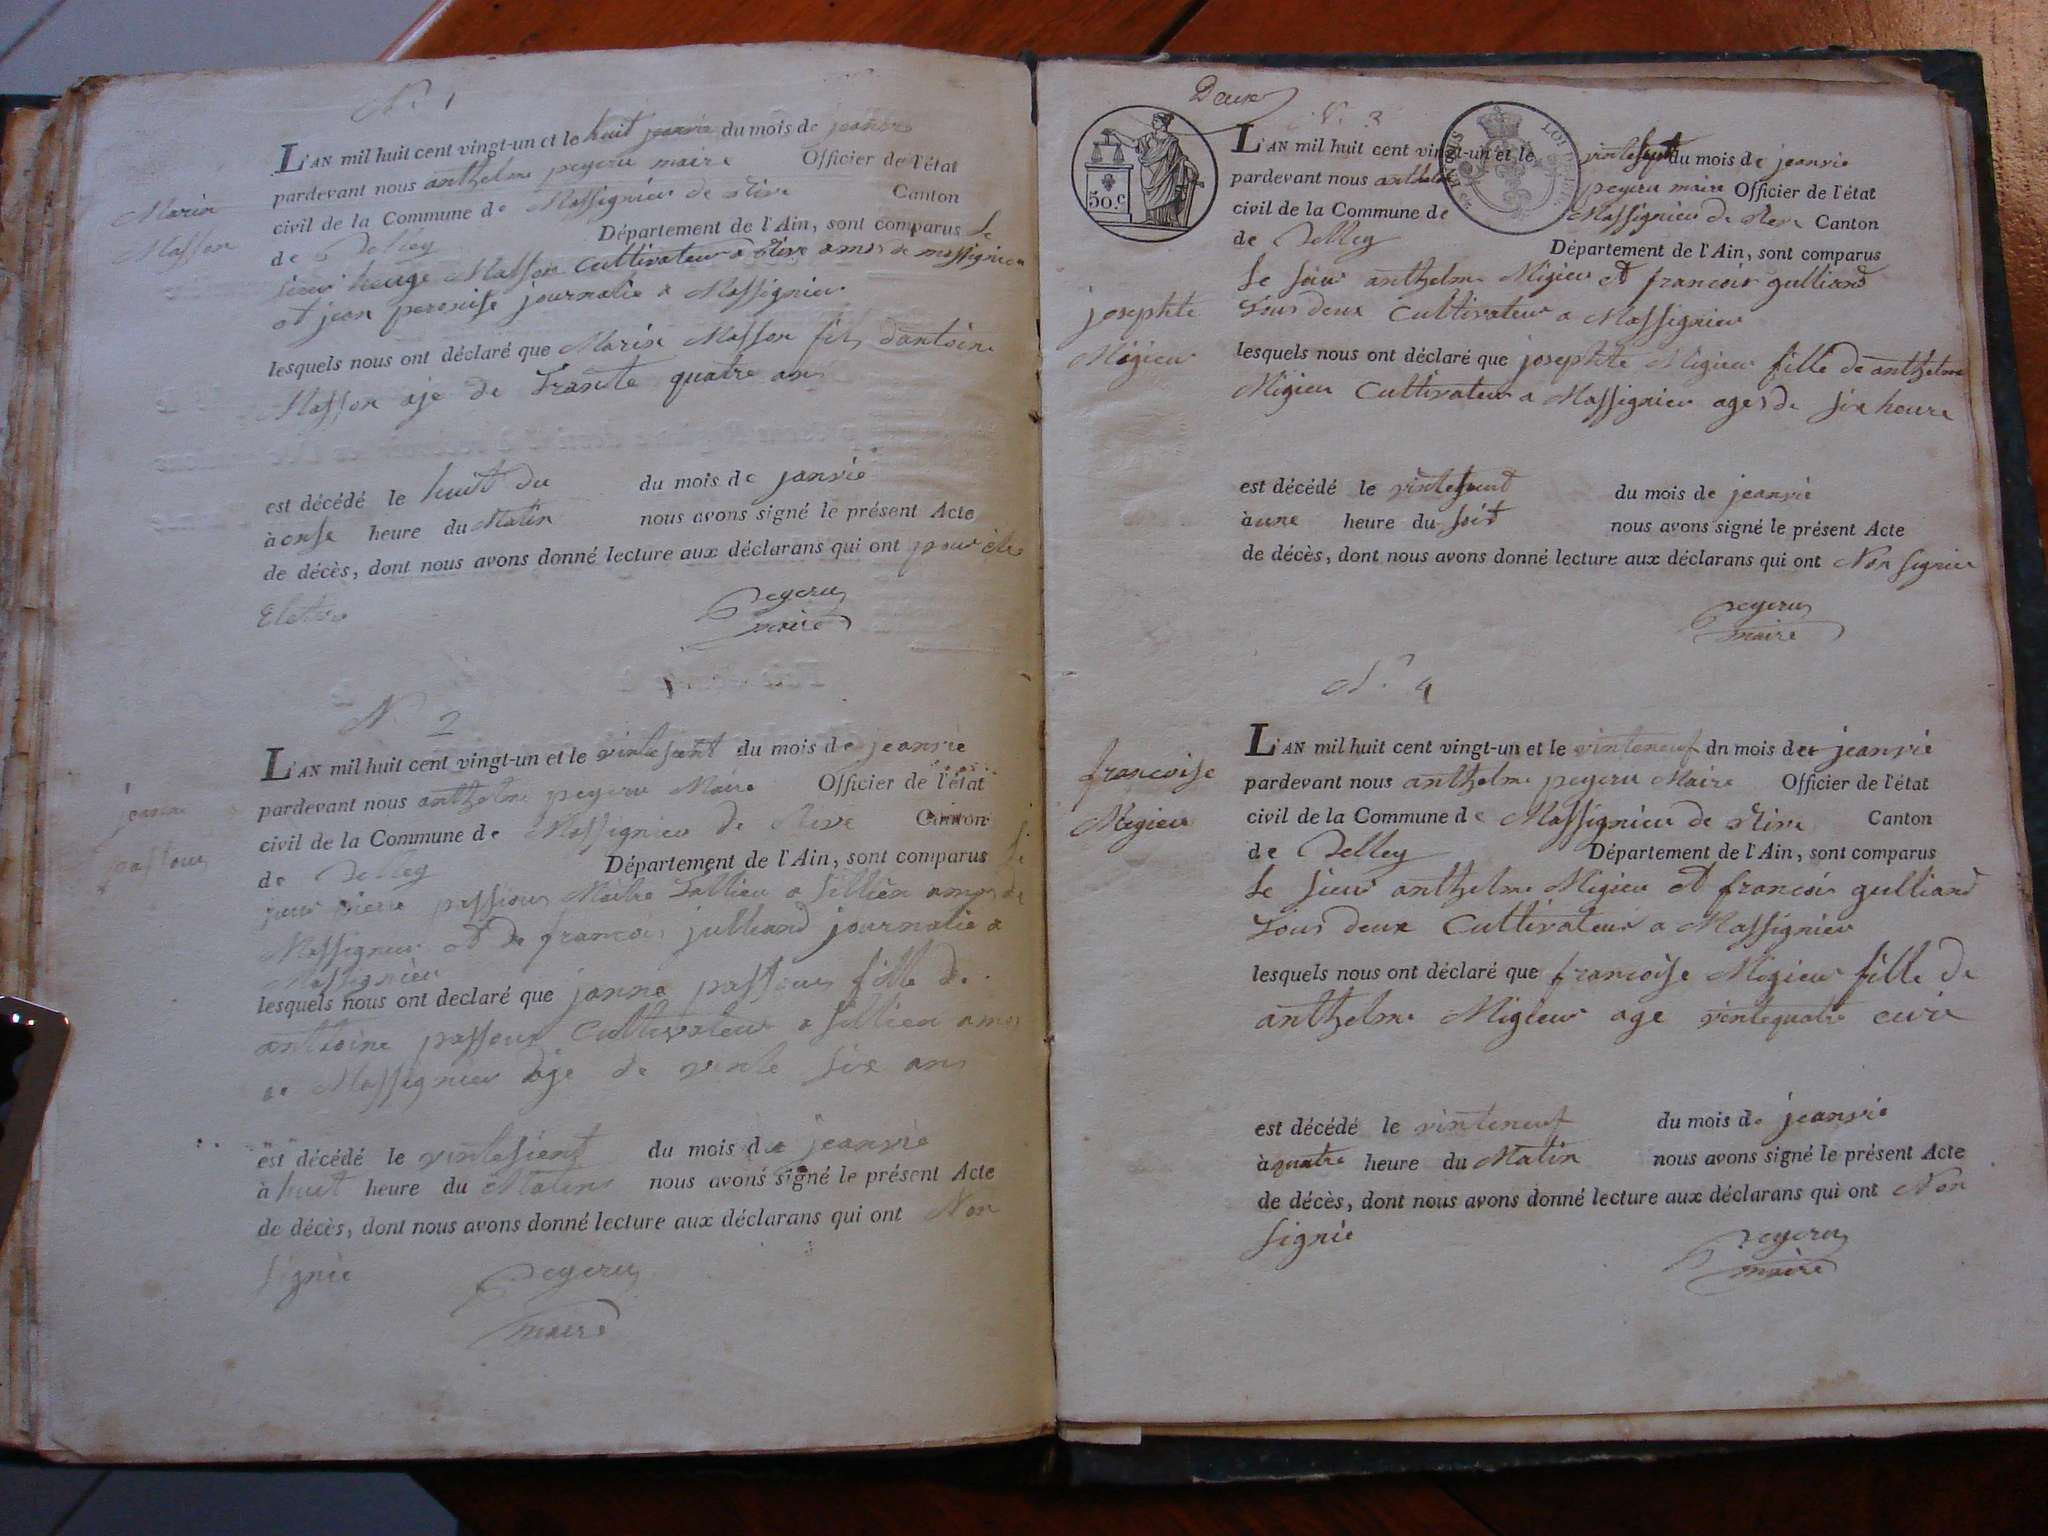 N° 1
L'AN mil huit cent vingt-un et le huit jeanvie du mois de jeanvie
pardevant nous anthelme pegeru maire Officier de l'état
civil de la Commune de Massignieu de Rive Canton
de Belley Département de l'Ain, sont comparus le
Marin
Masson
sieur Masson Cultivateur a Rive amos de massignieu
et jean peronise journalie a Massignieu
lesquels nous ont déclaré que Marin Masson fils dantoine
Masson aje de trante quatre ans
est décédé le huit du du mois de janvie
à onse heure du Matin nous avons signé le présent Acte
de décès, dont nous avons donné lecture aux déclarans qui ont pour etre
Pegeru
maire
N° 2
L'AN mil huit cent vingt-un et le du mois de jeanvie
pardevant nous anthelme pegeru Maire Officier de l'état
civil de la Commune de Massignieu de Rive Canton
de Belley Département de l'Ain, sont comparus le
janne
passour
pierre Maitre a Sillien amos de
Massignieu et de francois julliand journalie a
Massignieu
lesquels nous ont declaré que janne passour fille de
anttoine passour Cultivateur a Sillien amos
de Massignieu aje de vinte six ans
est décédé le du mois de jeanvie
à huit heure du Matin nous avons signé le présent Acte
de décès, dont nous avons donné lecture aux déclarans qui ont Non
signée
Pegeru
maire
Deux
N° 3
50.C
L'AN mil huit cent vingt-un et le du mois de jeanvie
pardevant nous anthelme pegeru maire Officier de l'état
civil de la Commune de Massignieu de Rive Canton
de Belley Département de l'Ain, sont comparus
le sieur anthelme Migieu et francois gulliand
josephte
Migieu
tous deux Cultivateur a Massignieu
lesquels nous ont déclaré que josephte Migieu fille de anthelme
Migieu Cultivateur a Massignieu ages de six heure
est décédé le du mois de jeanvie
à une heure du soir nous avons signé le présent Acte
de décès, dont nous avons donné lecture aux déclarans qui ont Non signier
Pegeru
maire
N° 4
L'AN mil huit cent vingt-un et le vinteneuf dn mois de jeanvie
francoise
Migieu
pardevant nous anthelme pegeru Maire Officier de l'état
civil de la Commune de Massignieu de Rive Canton
de Belley Département de l'Ain, sont comparus
le sieur anthelme Migieu et francois gulliand
tous deux Cultivateur a Massignieu
lesquels nous ont déclaré que francoise Migieu fille de
anthelme Migieu age vintequatre
est décédé le vinteneuf du mois de jeanvie
à quatre heure du Matin nous avons signé le présent Acte
de décès, dont nous avons donné lecture aux déclarans qui ont Non
signié
Pegeru
maire